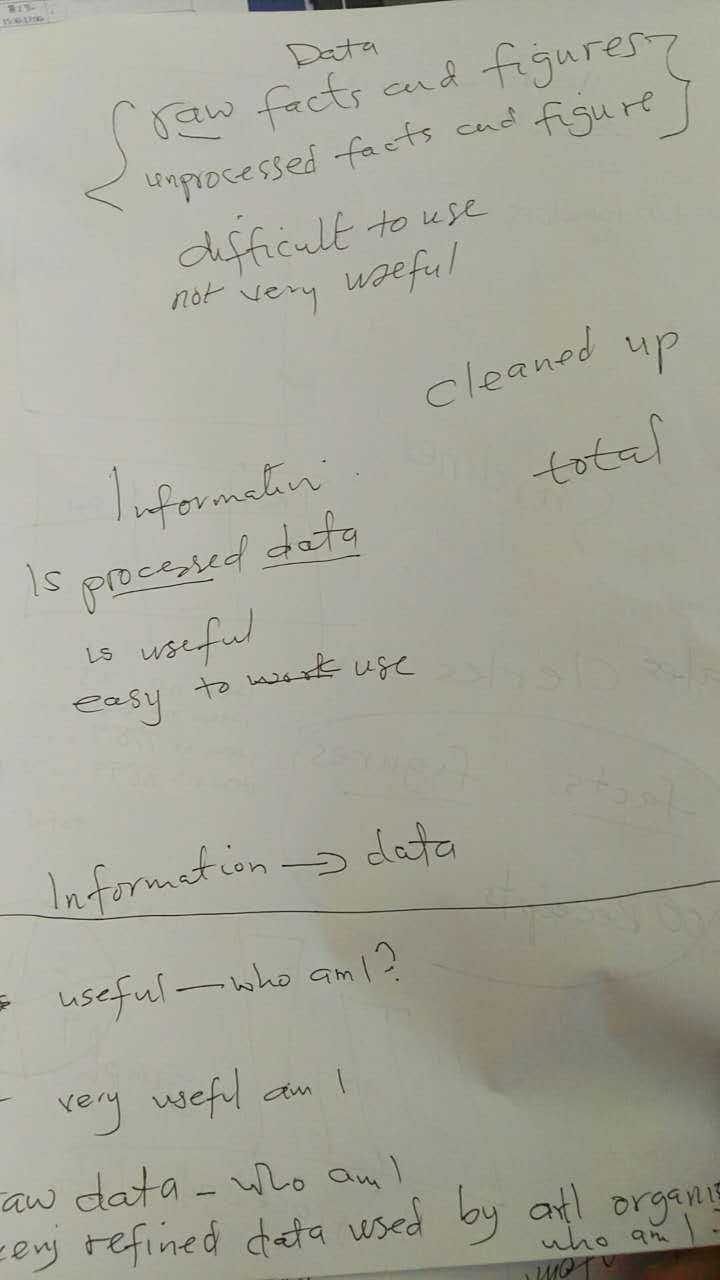 Data
raw facts and figures
unprocessed facts and figure
difficult to use
not very useful
cleaned up
total
Informatin
Is processed data
is useful
easy to work use
Information → data
useful — who am I?
very useful am I
raw data - who am I
refined data used by organis
who am I